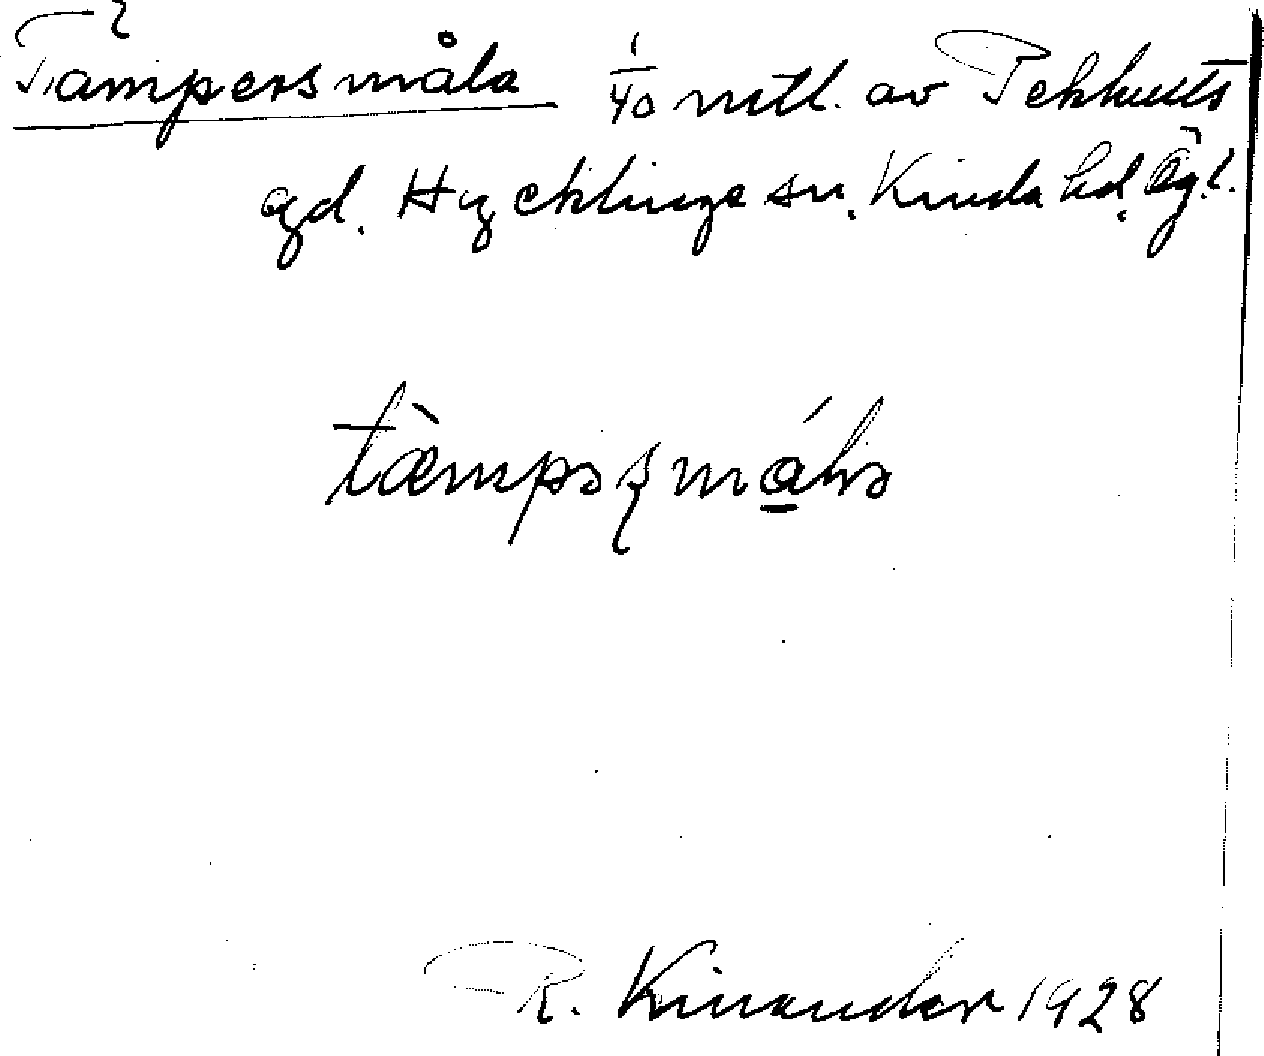 Tämpersmåla 1/40 mtl. av Tekhults
gd. Hycklinge sn. Kinda hd. Ögl.
tæ̀mpəʂmá̱lɩa
R. Kinander 1928